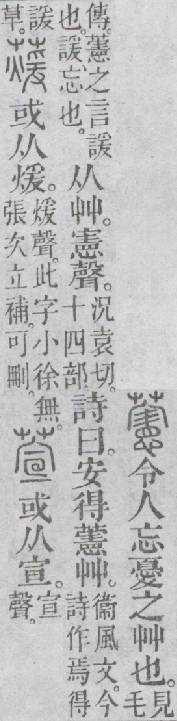 藼令人忘憂之艸也。見毛
傳。藼之言諼也。諼、忘也。从艸。憲聲。況袁切。十四部。詩曰。安得藼艸。衞風文。今詩作焉得
諼草。蕿或从煖。煖聲。此字小徐無。張次立補。可刪。萱或从宣。宣聲。